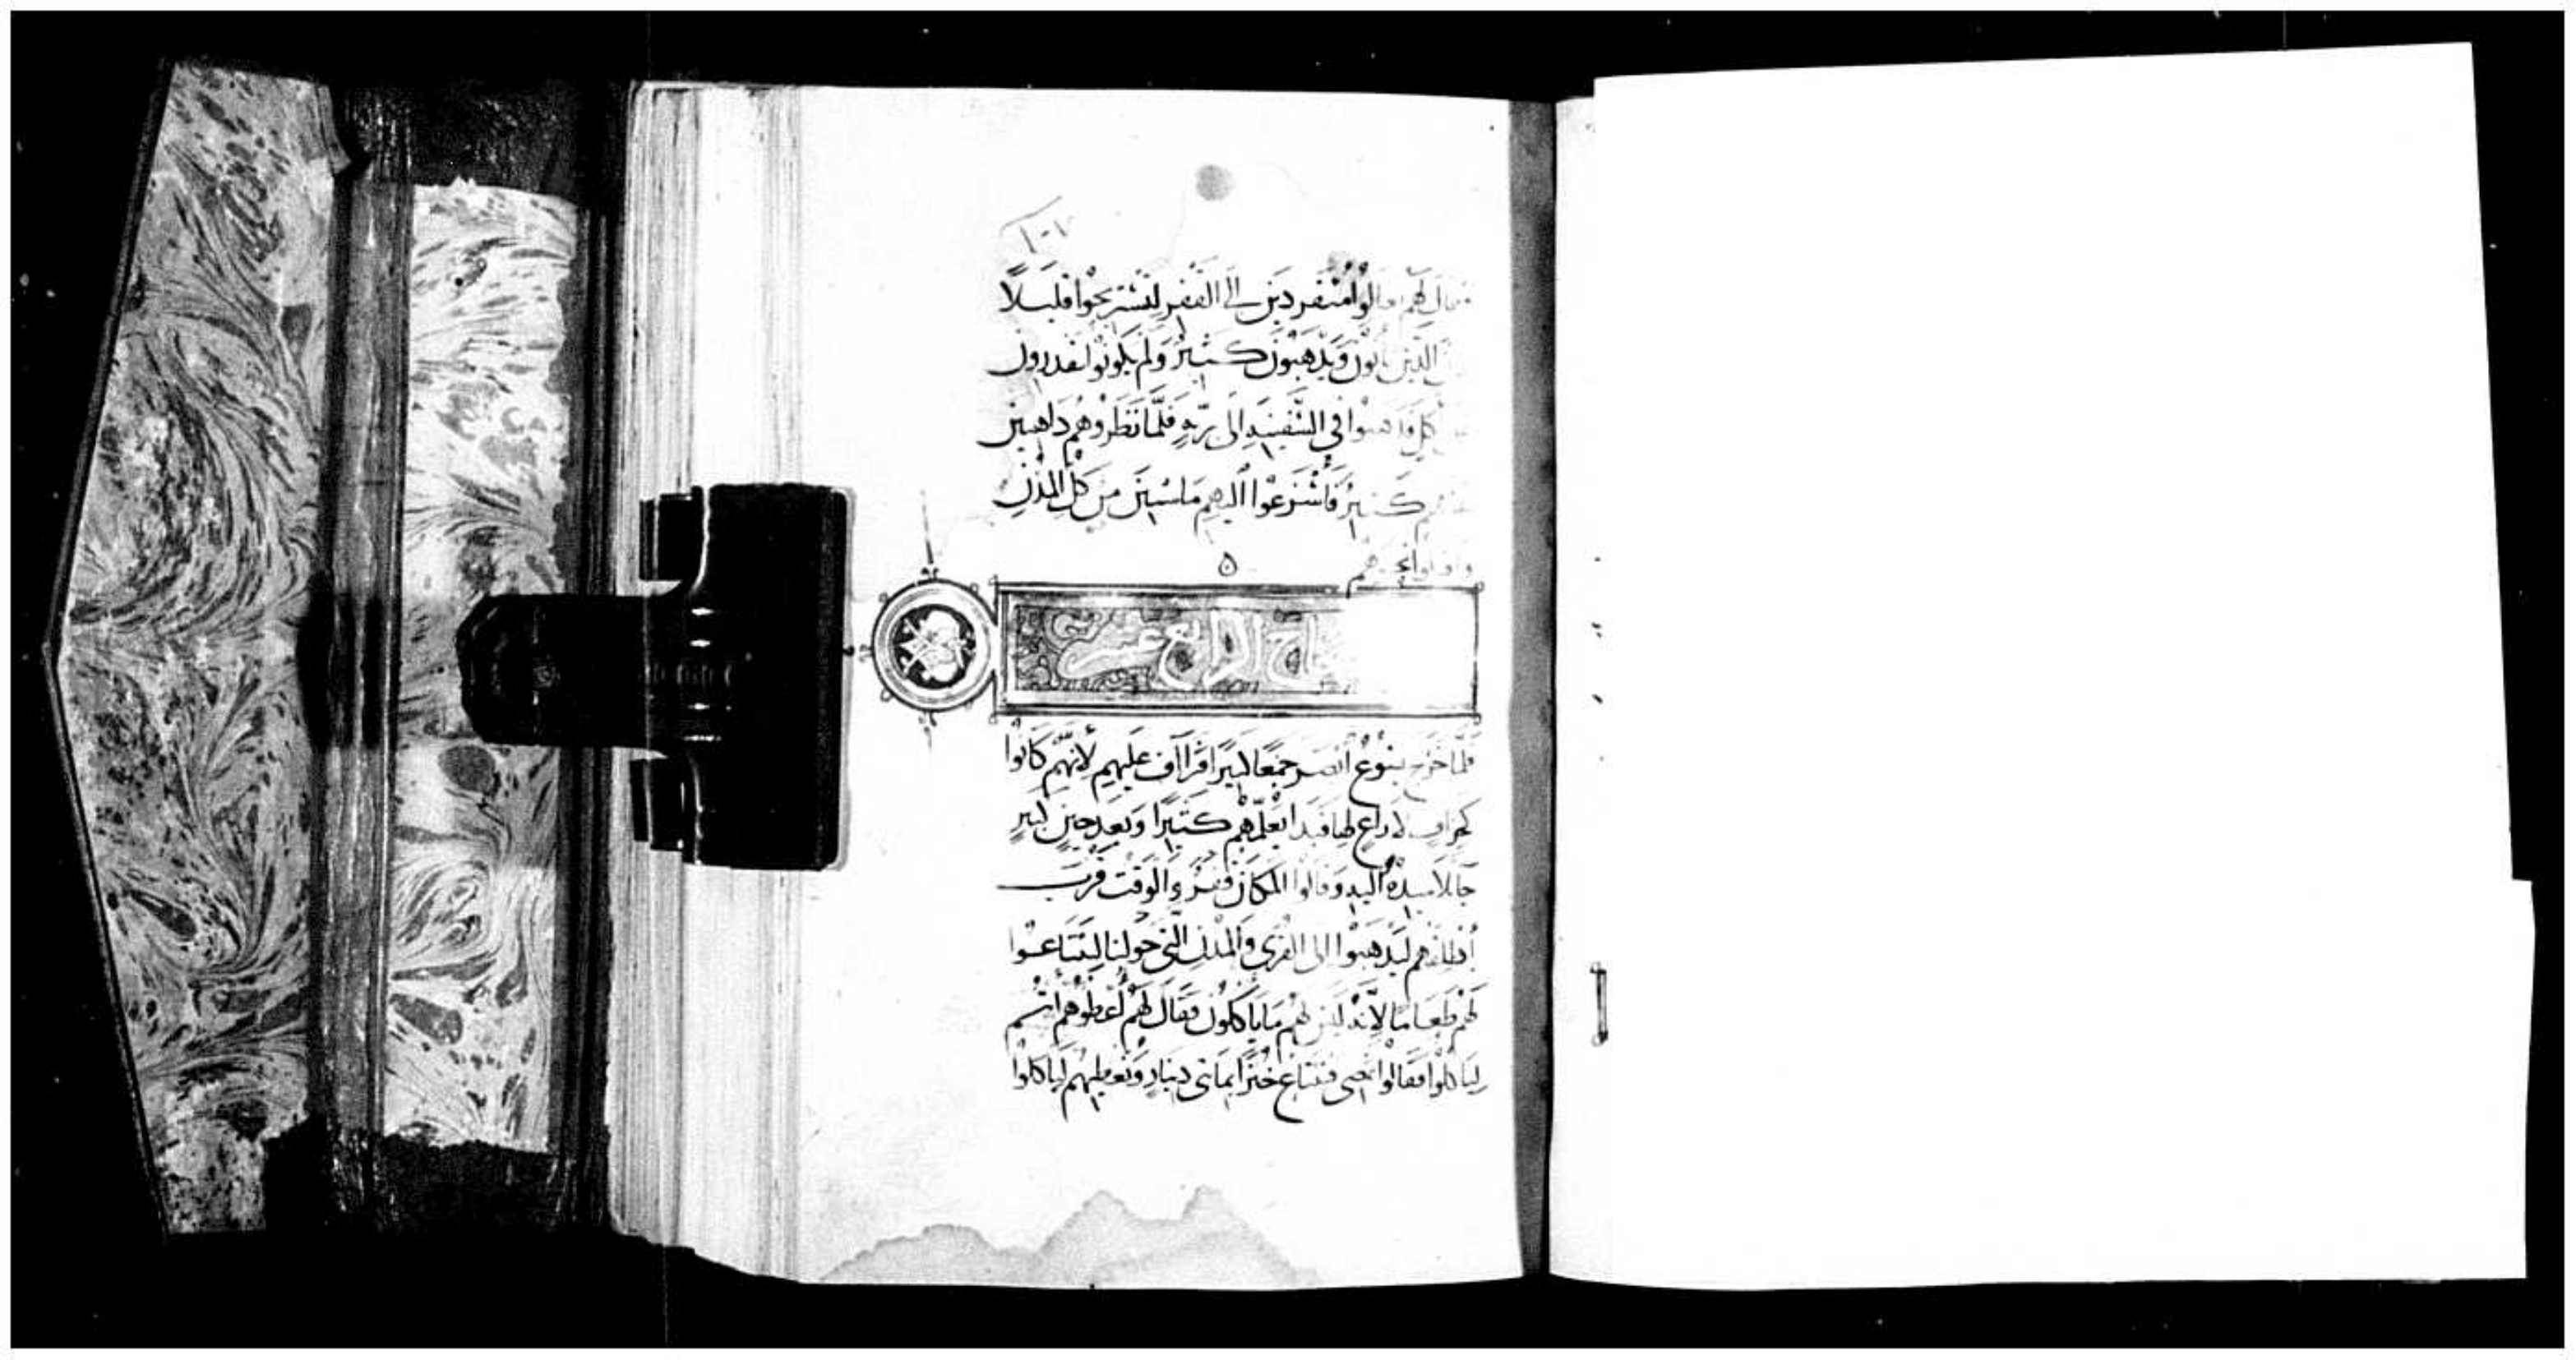 فقال لهم تعالوا منفردين الى القفر لتستريحوا قليلا
الذين ياتون ويذهبون كثير ولم يكونوا يقدرون
اكل فذهبوا في السفينه الى بريه فلما نظروهم ذاهبين
كثير فاسترعوا اليهم ماشيين من كل المدن
الرابع عشر
فلما خرج يسوع ابصر جمعا كبيرا فتراأف عليهم لانهم كانوا
كخراف لا راع لها فبدا يعلمهم كثيرا وبعد حين كبير
جا تلاميذه اليه وقالوا المكان قفر والوقت قرب
اطلقهم ليذهبوا الى القرى والمدن التي حولنا ليبتاعوا
لهم طعاما لانه ليس لهم ما ياكلون فقال لهم اعطوهم انتم
لياكلوا فقالوا نمضي فنبتاع خبزا بماتي دينار ونعطيهم لياكلوا